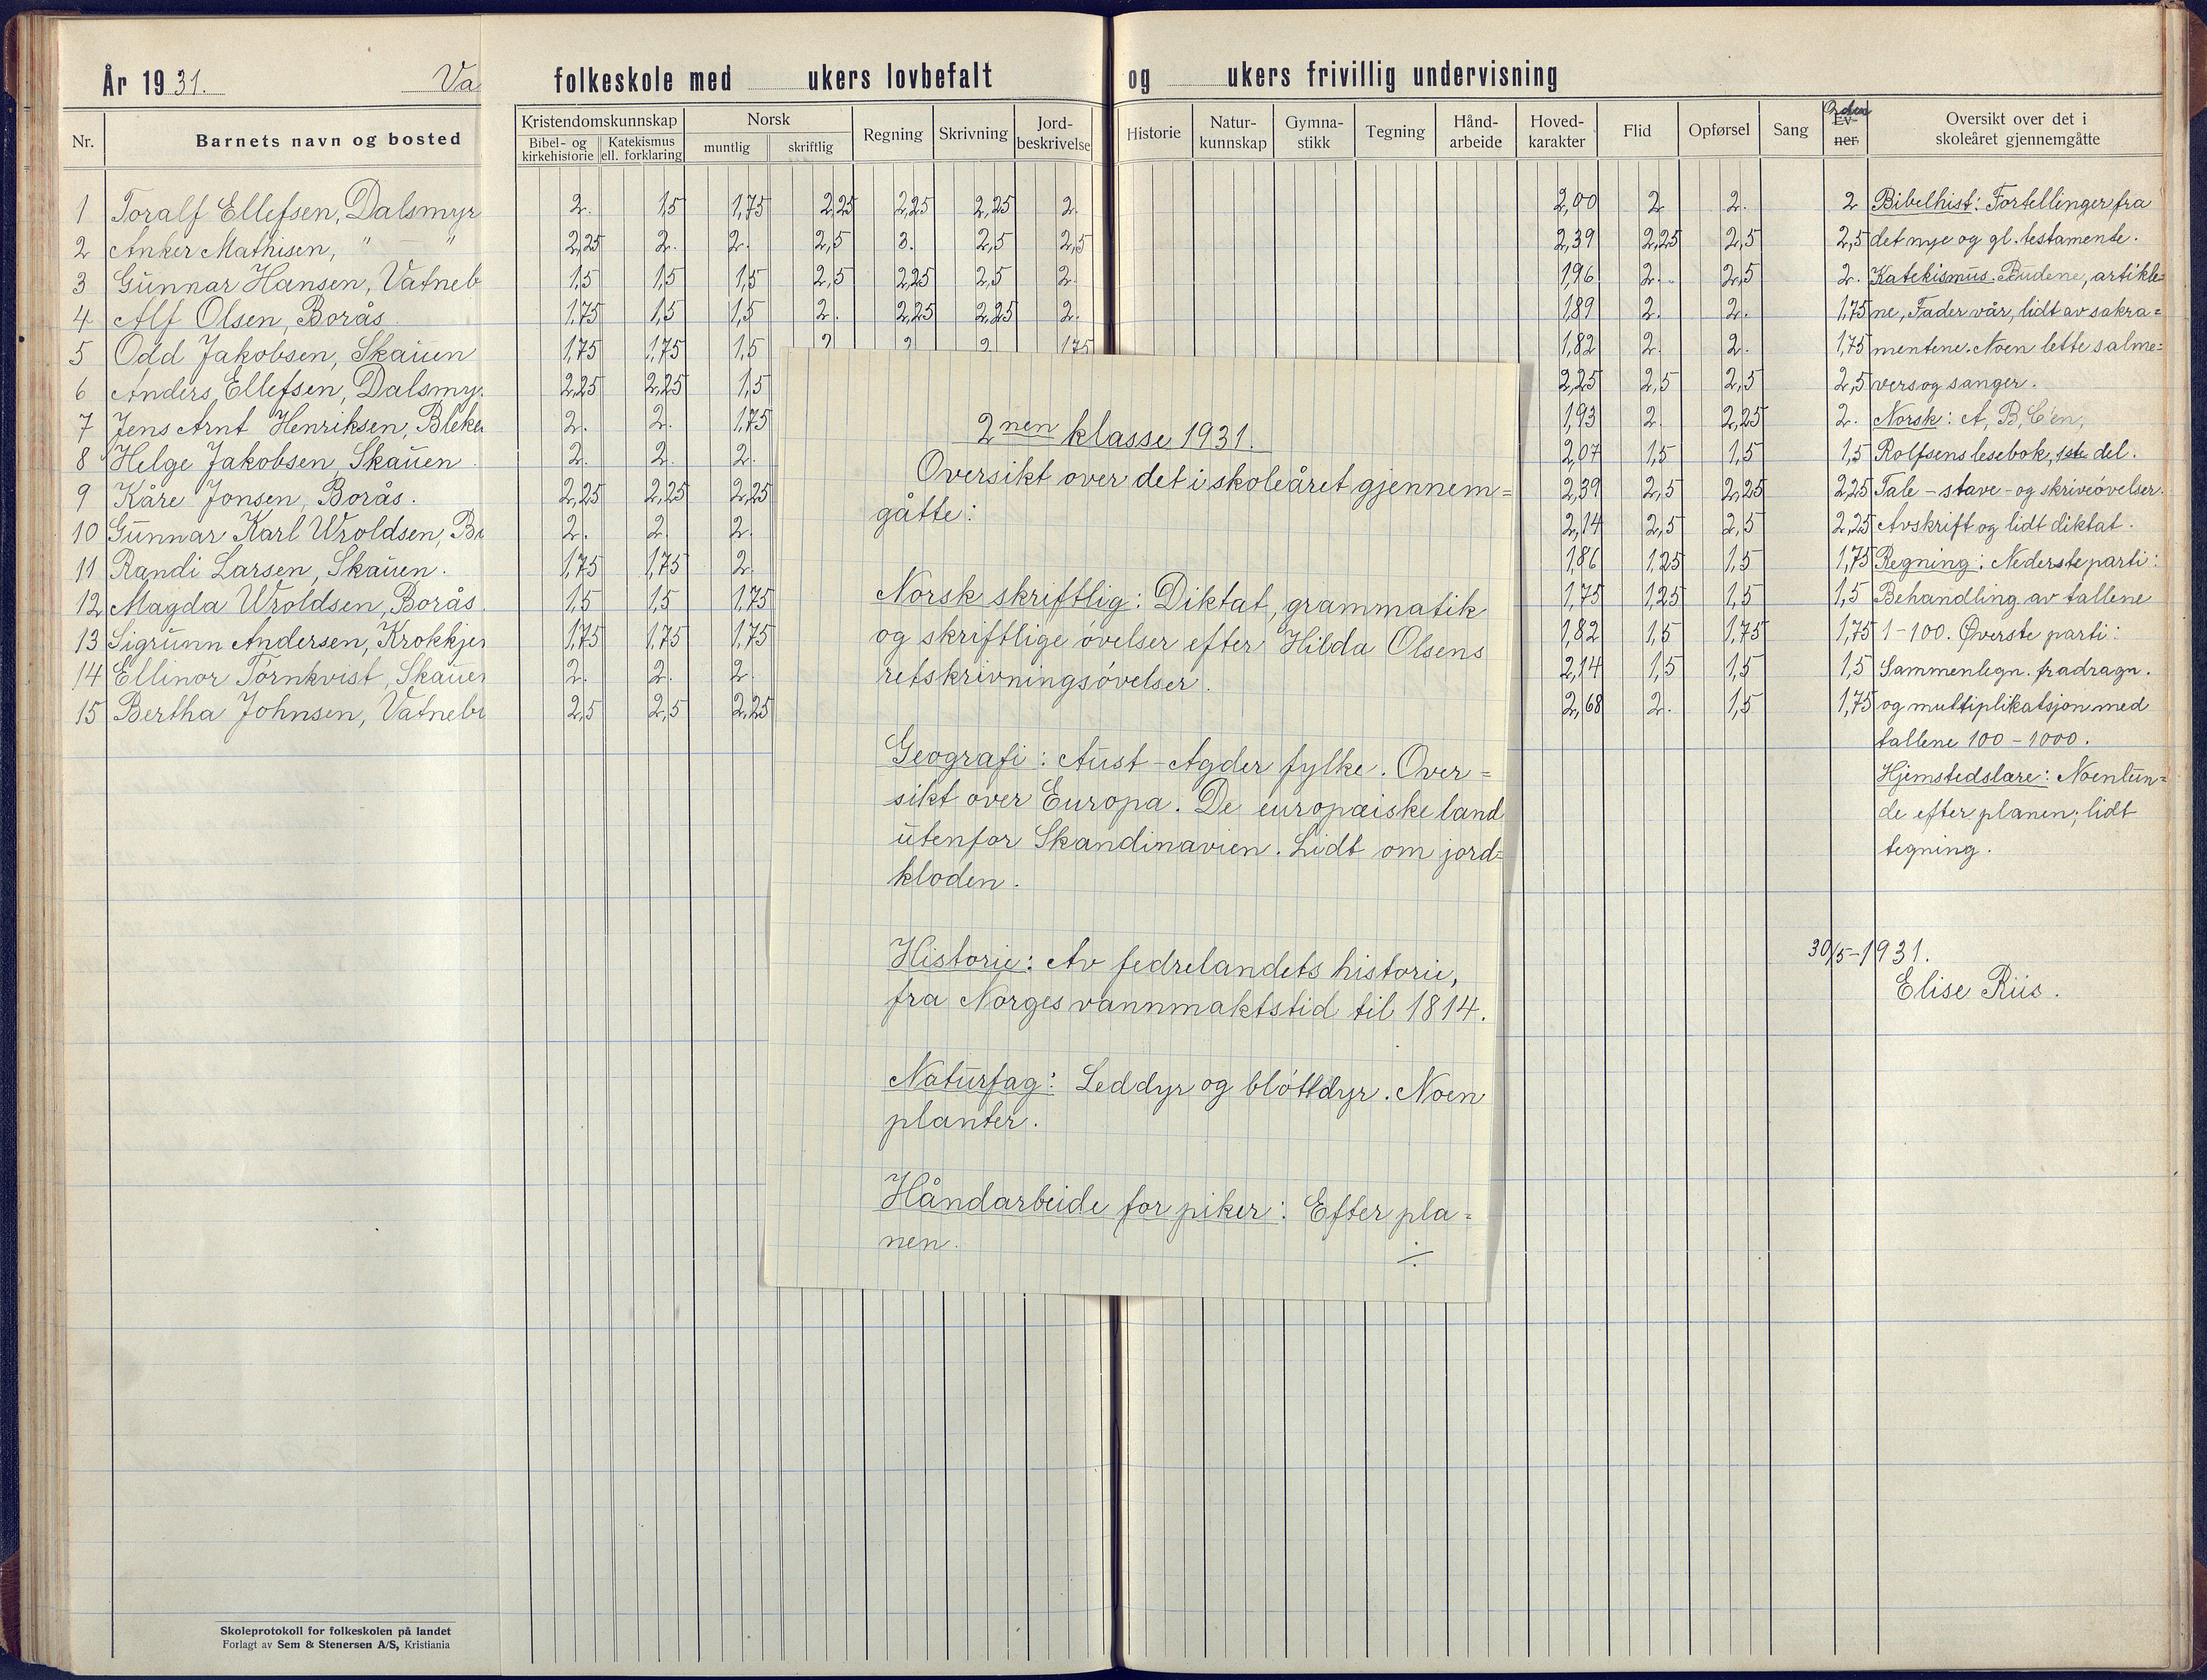 År 1931. Va
folkeskole med ukers lovbefalt og ukers frivillig undervisning
Nr. Barnets navn og bosted
Kristendomskunnskap Norsk Regning Skrivning Jord-beskrivelse
Bibel- og kirkehistorie Katekismus ell. forklaring muntlig skriftlig
Historie Natur-kunnskap Gymna-stikk Tegning Hånd-arbeide Hoved-karakter Flid Opførsel Sang Orden Ev-ner Oversikt over det i skoleåret gjennemgåtte
1 Toralf Ellefsen, Dalsmyr 2. 1,5 1,75 2,25 2,25 2,25 2. 2,00 2 2. 2
2 Anker Mathisen, " " 2,25 2. 2. 2,5 3. 2,5 2,5 2,39 2,25 2,5 2,5
3 Gunnar Hansen, Vatneb 1,5 1,5 1,5 2,5 2,25 2,5 2. 1,96 2. 2,5 2.
4 Alf Olsen, Borås. 1,75 1,5 1,5 2. 2,25 2,25 2. 1,89 2. 2. 1,75
5 Odd Jakobsen, Skauen 1,75 1,75 1,5 2 2 2. 1,75 1,82 2. 2. 1,75
6 Anders Ellefsen, Dalsmy. 2,25 2,25 1,5 2,25 2,5 2,5 2,5
7 Jens Arnt Henriksen, Bleke 2. 2. 1,75 1,93 2. 2,25 2.
8 Helge Jakobsen, Skauen. 2. 2. 2. 2,07 1,5 1,5 1,5
9 Kåre Jonsen, Borås. 2,25 2,25 2,25 2,39 2,5 2,25 2,25
10 Gunnar Karl Wroldsen, B 2. 2. 2. 2,14 2,5 2,5 2,25
11 Randi Larsen, Skauen. 1,75 1,75 2. 1,86 1,25 1,5 1,75
12 Magda Wroldsen, Borås. 1,5 1,5 1,75 1,75 1,25 1,5 1,5
13 Sigrunn Andersen, Krokkjer 1,75 1,75 1,75 1,82 1,5 1,75 1,75
14 Ellinor Törnkvist, Skauen 2. 2. 2. 2,14 1,5 1,5 1,5
15 Bertha Johnsen, Vatneb 2,5 2,5 2,25 2,68 2. 1,5 1,75
2nen klasse 1931.
Oversikt over det i skoleåret gjennem=
gåtte:
Norsk skriftlig: Diktat, grammatik
og skriftlige øvelser efter Hilda Olsens
retskrivningsøvelser.
Geografi: Aust-Agder fylke. Over=
sikt over Europa. De europæiske land
utenfor Skandinavien. Lidt om jord=
kloden.
Historie: Av fedrelandets historie,
fra Norges vannmaktstid til 1814.
Naturfag: Leddyr og bløttdyr. Noen
planter.
Håndarbeide for piker: Efter pla=
nen.
Bibelhist: Fortellinger fra
det nye og gl. testamente.
Katekismus. Budene, artikle=
ne, Fader vår, lidt av sakra=
mentene. Noen lette salme=
vers og sanger.
Norsk: A, B, C'en,
Rolfsens lesebok, 1ste del.
Tale- stave- og skriveøvelser.
Avskrift og lidt diktat.
Regning: Nederste parti:
Behandling av tallene
1-100. Øverste parti:
Sammenlegn. fradragn.
og multiplikatsjon med
tallene 100-1000.
Hjemstedslære: Noen tun=
de efter planen; lidt
tegning.
30/5-1931.
Elise Riis.
Skoleprotokoll for folkeskolen på landet
Forlagt av Sem & Stenersen A/S, Kristiania